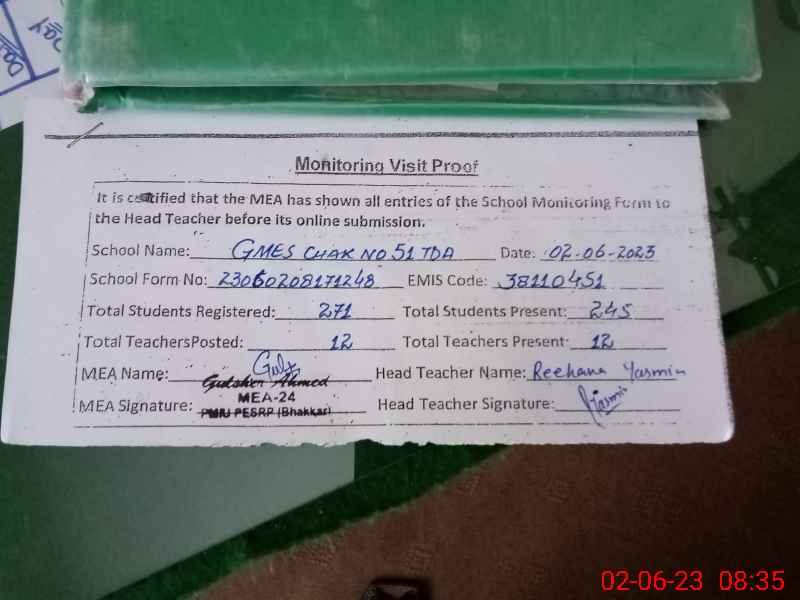 Monitoring Visit Proof
It is certified that the MEA has shown all entries of the School Monitoring Form to
the Head Teacher before its online submission.
School Name: GMES CHAK NO 51 TDA Date: 02-06-2023
School Form No: 23060208171248 EMIS Code: 38110451
Total Students Registered: 271 Total Students Present: 245
Total TeachersPosted: 12 Total Teachers Present: 12
MEA Name: Gulsher Ahmed Head Teacher Name: Reehana Yasmin
MEA Signature: MEA-24 Head Teacher Signature: Yasmin
PMIU PESRP (Bhakkar)
02-06-23 08:35